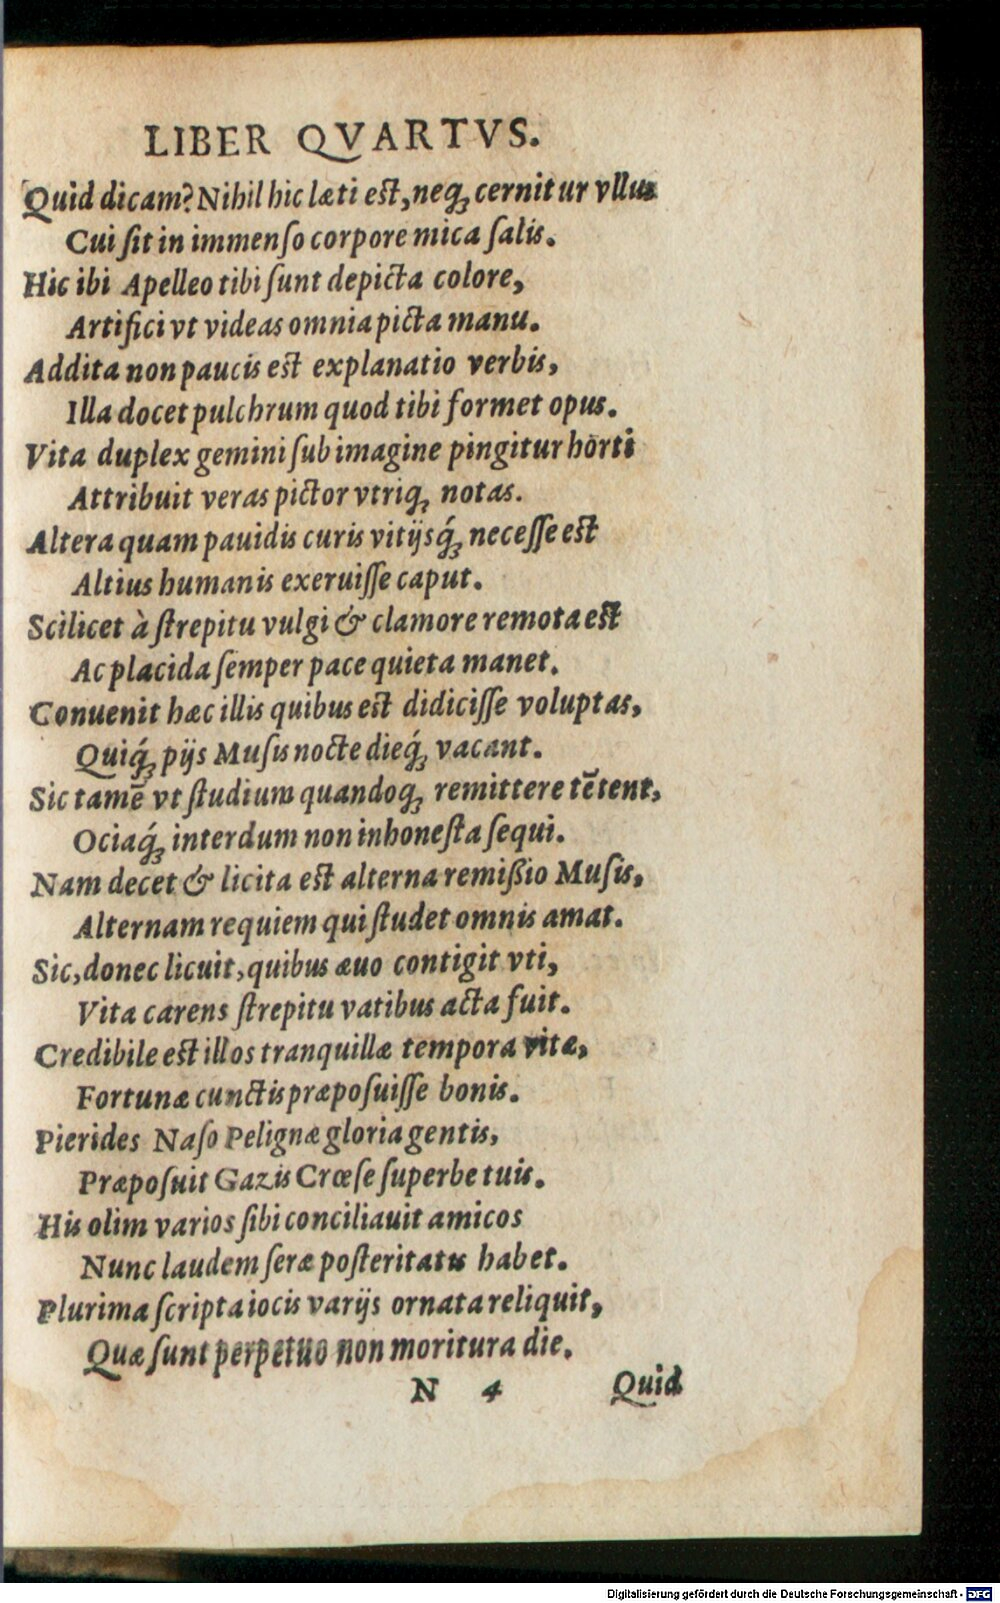 LIBER QVARTVS.
Quid dicam? Nihil hic læti est, neq́ꝫ cernitur vllus
Cui ſit in immenſo corpore mica ſalis.
Hic ibi Apelleo tibi ſunt depicta colore,
Artifici vt videas omnia picta manu.
Addita non paucis est explanatio verbis,
Illa docet pulchrum quod tibi formet opus.
Vita duplex gemini ſub imagine pingitur hōrti
Attribuit veras pictor vtriqꝫ notas.
Altera quam pauidis curis vitijsq́ꝫ neceſſe est
Altius humanis exeruiſſe caput.
Scilicet à ſtrepitu vulgi & clamore remota est
Ac placida ſemper pace quieta manet.
Conuenit hæc illis quibus est didiciſſe voluptas,
Quiq́ꝫ pijs Muſis nocte dieq́ꝫ vacant.
Sic tamē vt ſtudium quandoqꝫ remittere tētent,
Ociaq́ꝫ interdum non inhoneſta ſequi.
Nam decet & licita est alterna remißio Muſis,
Alternam requiem qui ſtudet omnis amat.
Sic, donec licuit, quibus æuo contigit vti,
Vita carens ſtrepitu vatibus acta fuit.
Credibile est illos tranquillæ tempora vitæ,
Fortunæ cunctis præpoſuiſſe bonis.
Pierides Naſo Pelignæ gloria gentis,
Præpoſuit Gazis Crœſe ſuperbe tuis.
His olim varios ſibi conciliauit amicos
Nunc laudem ſeræ poſteritatis habet.
Plurima ſcripta iocis varijs ornata reliquit,
Quæ ſunt perpetuo non moritura die.
N 4 Quid
Digitalisierung gefördert durch die Deutsche Forschungsgemeinschaft - DFG